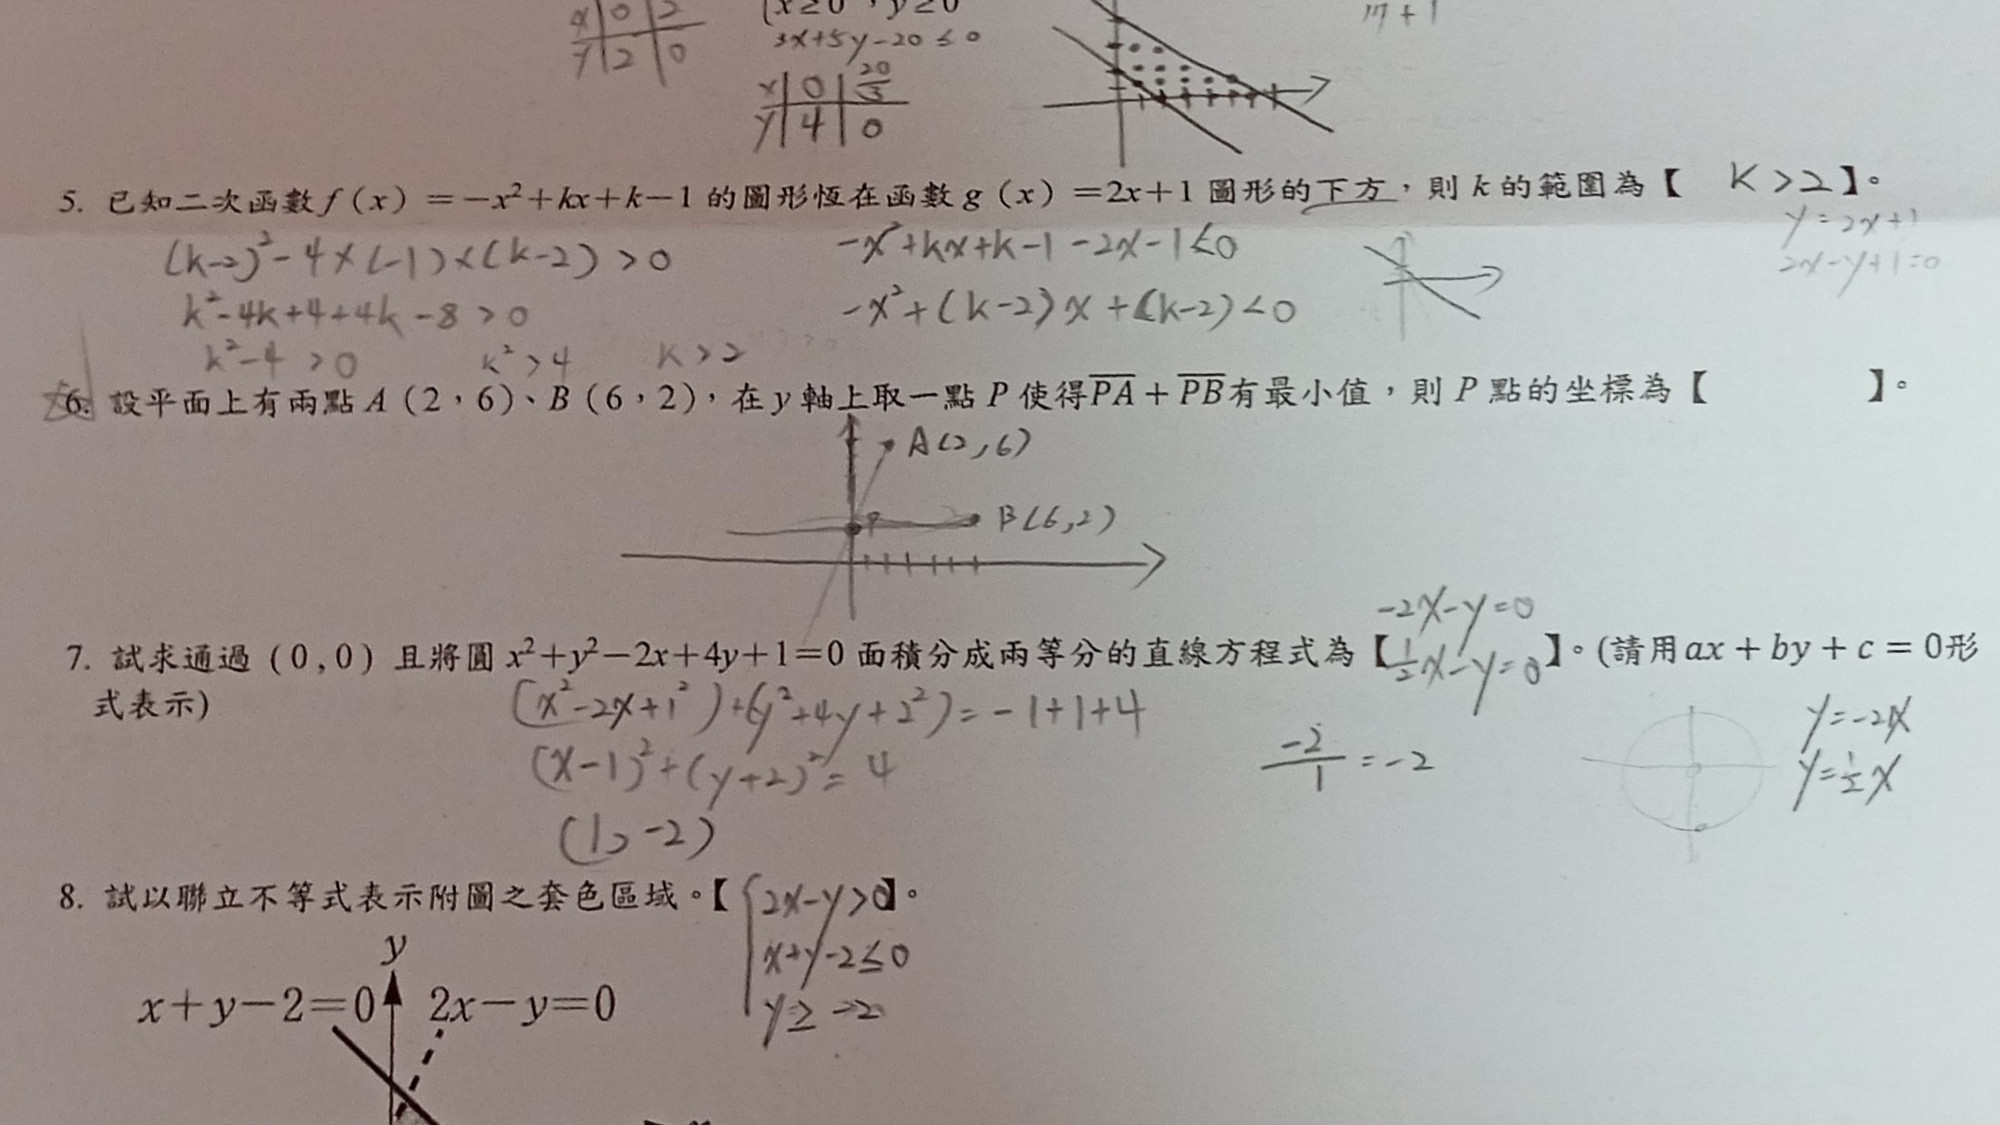 x 0 2
y 2 0
x≥0，y≥0
3x+5y-20≤0
x 0 20/3
y 4 0
17+1
5. 已知二次函數 f（x）=-x²+kx+k-1 的圖形恆在函數 g（x）=2x+1 圖形的下方，則 k 的範圍為【 K>2 】。
(k-2)²-4×(-1)×(k-2)>0
k²-4k+4+4k-8>0
k²-4>0 k²>4 K>2
-x²+kx+k-1-2x-1<0
-x²+(k-2)x+(k-2)<0
y=2x+1
2x-y+1=0
6. 設平面上有兩點 A（2，6）、B（6，2），在 y 軸上取一點 P 使得 PA + PB 有最小值，則 P 點的坐標為【 】。
A(2,6)
P
B(6,2)
-2x-y=0
7. 試求通過（0,0）且將圓 x²+y²-2x+4y+1=0 面積分成兩等分的直線方程式為【½x-y=0】。(請用 ax + by + c = 0 形
式表示)
(x²-2x+1²)+(y²+4y+2²)=-1+1+4
(x-1)²+(y+2)²=4
(1,-2)
-2/1=-2
y=-2x
y=½x
8. 試以聯立不等式表示附圖之套色區域。【 2x-y>0 】。
x+y-2≤0
y≥-2
y
x+y-2=0 2x-y=0